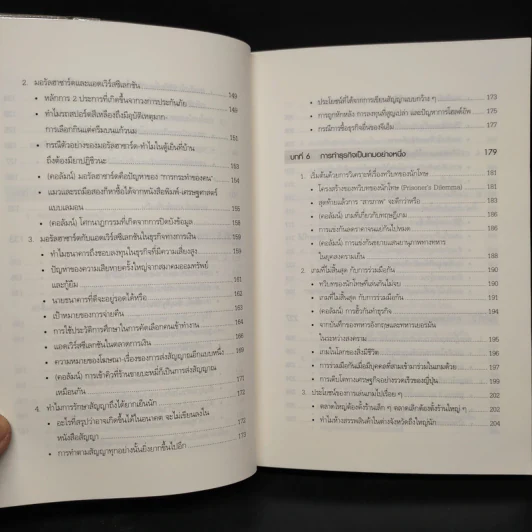 2. มอรัลฮาซาร์ดและแอดเวิร์สซีเลกชัน 149
• หลักการ 2 ประการที่เกิดขึ้นจากวงการประกันภัย 149
• ทำไมรถสปอร์ตสีเหลืองถึงมีอุบัติเหตุมาก
การเลือกกินแต่ครีมบนแก้วนม 151
• กรณีตัวอย่างของมอรัลฮาซาร์ด-ทำไมในตู้เย็นที่บ้าน
ถึงต้องมียาปฏิชีวนะ 153
• (คอลัมน์) มอรัลฮาซาร์ดคือปัญหาของ "การกระทำของคน" 154
• แมวและรถมือสองก็หาซื้อได้จากหนังสือพิมพ์-เศรษฐศาสตร์
แบบเลมอน
• (คอลัมน์) โศกนาฏกรรมที่เกิดจากการปิดบังข้อมูล 158
3. มอรัลฮาซาร์ดกับแอดเวิร์สซีเลกชันในธุรกิจทางการเงิน 159
• ทำไมธนาคารถึงชอบลงทุนในธุรกิจที่มีความเสี่ยงสูง 159
• ปัญหาของความเสียหายครั้งใหญ่จากสมาคมออมทรัพย์
และกู้ยืม 160
• นายธนาคารที่ดีจะอยู่รอดได้หรือ 161
• เป้าหมายของการจ่ายต้น
• การใช้ประวัติการศึกษาในการคัดเลือกคนเข้าทำงาน
• แอดเวิร์สซีเลกชันในตลาดการเงิน
• ความหมายของโฆษณา-เรื่องของการส่งสัญญาณอีกแบบหนึ่ง
• (คอลัมน์) การเช้าคิวที่ร้านราเมะหมี่ก็เป็นการส่งสัญญาณ
เหมือนกัน 171
4. ทำไมการรักษาสัญญาถึงได้ยากเย็นนัก 172
• อะไรที่สรุปว่าอาจเกิดขึ้นได้ในอนาคต จะไม่เขียนลงใน
หนังสือสัญญา 172
• การทำตามสัญญาทุกอย่างนั้นยิ่งยากขึ้นไปอีก 173
• ประโยชน์ที่ได้จากการเขียนสัญญาแบบกว้าง ๆ 173
• การถูกหักหลัง การลงทุนที่สูญเปล่า และปัญหาการโฮลด์อัพ 175
• กรณีการซื้อธุรกิจอื่นของจีเอ็ม 177
บทที่ 6 การทำธุรกิจเป็นเกมอย่างหนึ่ง 179
1. เริ่มต้นด้วยการวิเคราะห์เรื่องทวิบทของนักโทษ 180
• โครงสร้างของทวิบทของนักโทษ (Prisoner's Dilemma) 180
• สุดท้ายแล้วการ "สารภาพ" จะดีกว่าหรือ 183
• (คอลัมน์) เกมที่เกี่ยวกับทฤษฎีเกม 184
• การแข่งกันลดราคาจนแย่กันไปหมด 186
• (คอลัมน์) การแข่งกันขยายแสนยานุภาพทางทหาร
ในยุคสงครามเย็น 188
2. เกมที่ไม่สิ้นสุด กับการร่วมมือกัน 190
• ทวิบทของนักโทษที่เล่นกันไม่จบ 190
• เกมที่ไม่สิ้นสุด กับการร่วมมือกัน 191
• (คอลัมน์) ฮั้วกันทำธุรกิจ 194
• จากบันทึกของทหารอังกฤษและทหารเยอรมัน
ในระหว่างสงคราม 195
• เกมในโลกของสิ่งมีชีวิต 196
• การร่วมมือกันเมื่อมีบุคคลที่สามเข้ามาร่วมในเกมด้วย 198
• การเติบโตทางเศรษฐกิจอย่างรวดเร็วของญี่ปุ่น 199
3. ประโยชน์ของการเล่นเกมไปเรื่อย ๆ 202
• ตลาดใหญ่ต้องตั้งร้านเล็ก ๆ ตลาดเล็กต้องตั้งร้านใหญ่ ๆ 202
• ทำไมห้างสรรพสินค้าในต่างจังหวัดถึงใหญ่นัก 204